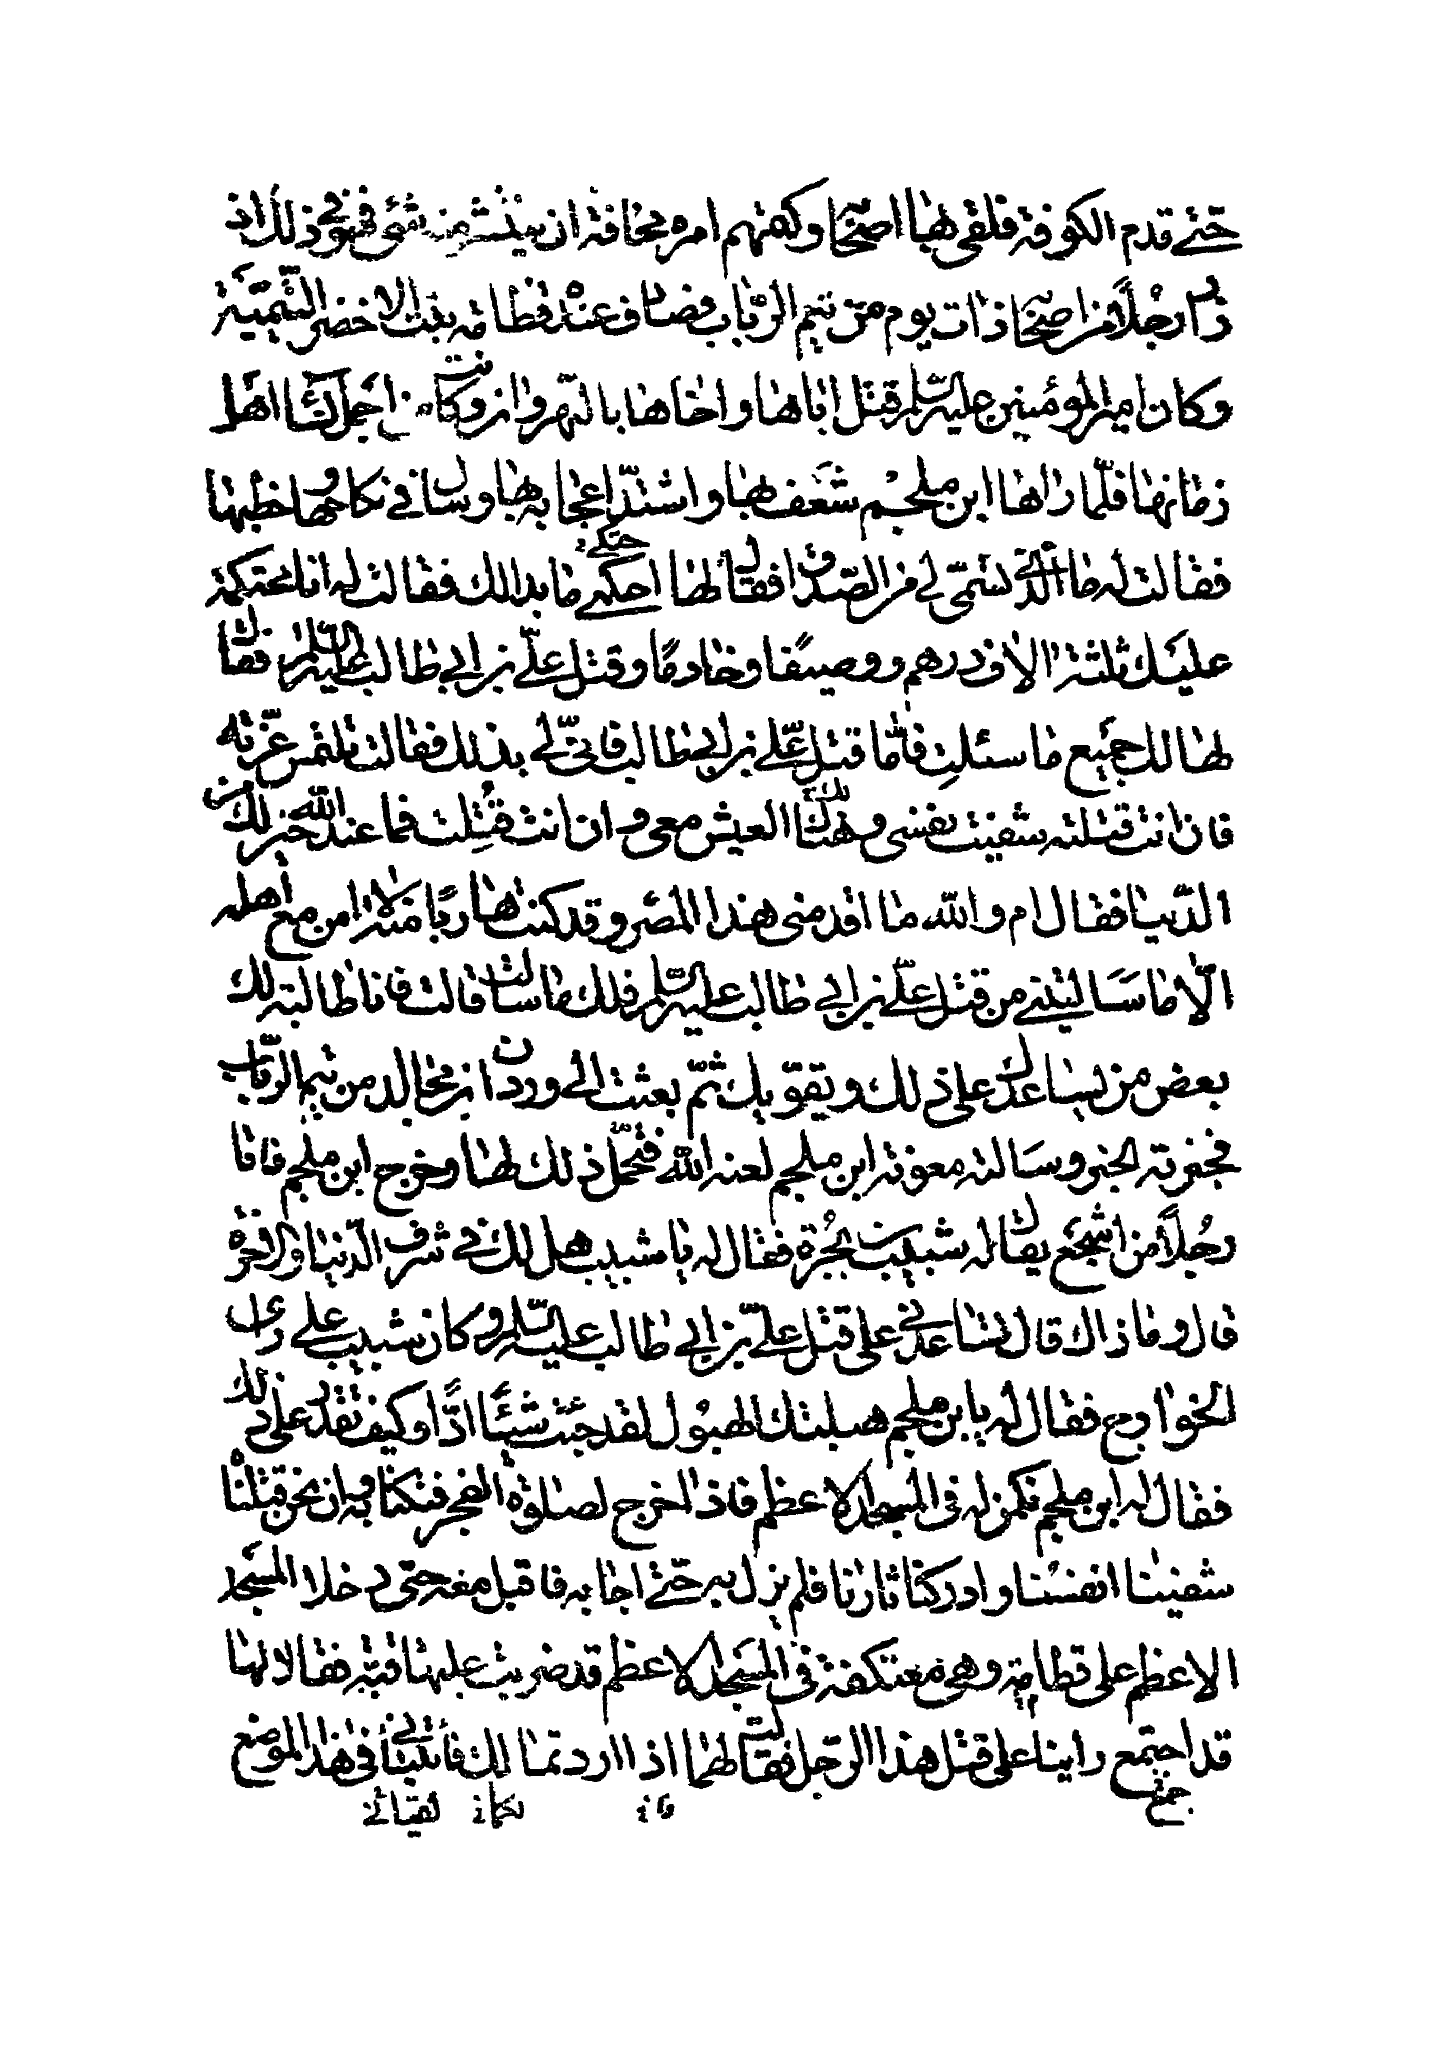 حتّى قدم الكوفة فلقى بها اصحابه وكتمهم امره مخافة ان ينتشر منه شئ فهو فى ذلك اذ
زار رجلاً من اصحابه ذات يوم من تيم الرّباب فصادف عنده قطامة بنت الاخضر التّيميّة
وكان امير المؤمنين عليه السّلم قتل اباها واخاها بالنّهروان وكانت من اجمل نساء اهل
زمانها فلمّا راها ابن ملجم شعف بها واشتدّ اعجابه بها وسال فى نكاحها وخطبها
فقالت له ما الّذى تسمّى لى من الصّداق فقال لها احكمى ما بدا لك فقالت له انا محتكمة
حتكمى
عليك ثلثة الاف درهم ووصيفا وخادمًا وقتل علىّ بن ابى طالب عليه السّلم فقال
لها لك جميع ما سئلتِ فامّا قتل علىّ بن ابى طالب فانّى لى بذلك فقالت تلتمس غرّته
فان انت قتلته شفيت نفسى وهنّاك العيش معى وان انت قُتِلت فما عند الله خير لك من
الدّنيا فقال ام والله ما اقدمنى هذا المصر وقد كنت هاربًا منه لا امن مع اهله
الّا ما سَالتنى من قتل علىّ بن ابى طالب عليه السّلم فلك ما سالت قالت فانا طالبته لك
بعض من يساعدك على ذلك ويقوّيك ثمّ بعثت الى وردان بن مجالد من تيم الرّباب
فخبرته الخبر وسَالته معونة ابن ملجم لعنه الله فتحمّل ذلك لها وخرج ابن ملجم فاتا
رجُلاً من اشجع يقال له شبيب بن بجُرة فقال له يا شبيب هل لك فى شرف الدّنيا والاخرة
قال وما ذاك قال تساعدنى على قتل علىّ بن ابى طالب عليه السّلم وكان شبيب على راى
الخوارج فقال له يا بن ملجم هبلتك الهبُول لقد جئت شيئًا ادًّا وكيف تقدر على ذلك
فقال له ابن ملجم نكمن له فى المسجد الاعظم فاذا خرج لصلوة الفجر فتكنا به وان نحن قتلناه
شفينا انفسنا وادركنا ثارنا فلم يزل به حتّى اجابه فاقبل معه حتى دخلا المسجد
الاعظم على قطامة وهى معتكفة فى المسجد الاعظم قد ضربت عليها قبّة فقالا لها
قد اجتمع راينا على قتل هذا الرّجل فقالت لهما اذا اردتما ذلك فأتيانى فى هذا الموضع